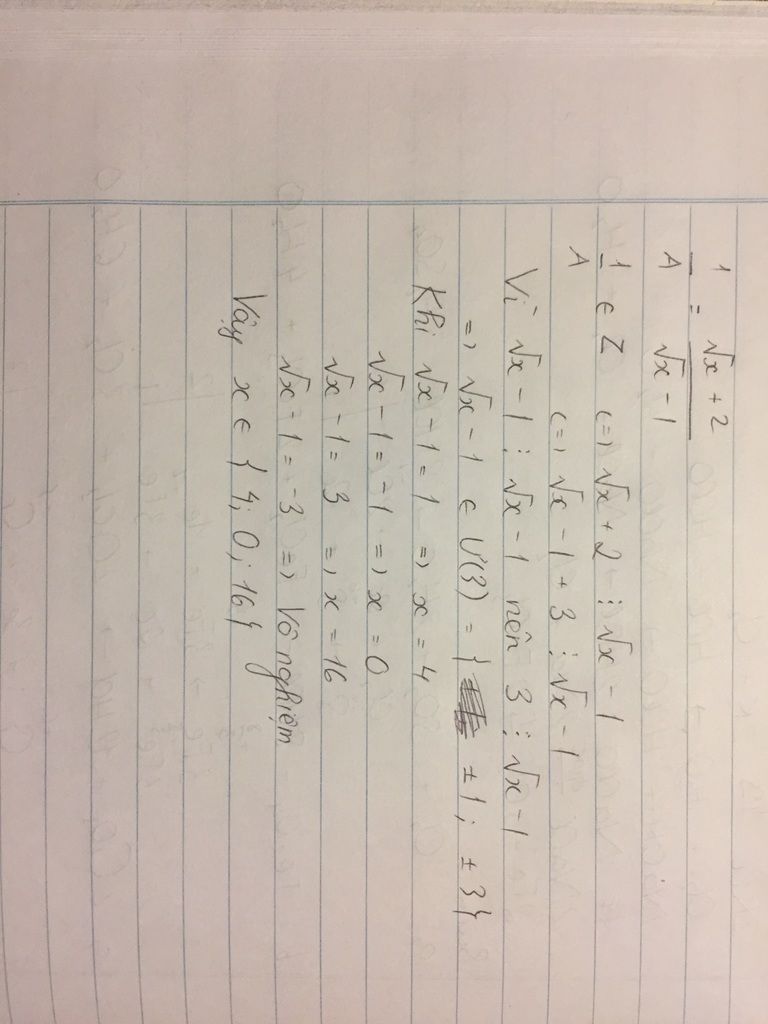 1/A = (√x + 2)/(√x - 1)
1/A ∈ Z <=> √x + 2 ⋮ √x - 1
<=> √x - 1 + 3 ⋮ √x - 1
Vì √x - 1 ⋮ √x - 1 nên 3 ⋮ √x - 1
=> √x - 1 ∈ Ư(3) = { ±1; ±3}
Khi √x - 1 = 1 => x = 4
√x - 1 = -1 => x = 0
√x - 1 = 3 => x = 16
√x - 1 = -3 => Vô nghiệm
Vậy x ∈ {4; 0; 16}